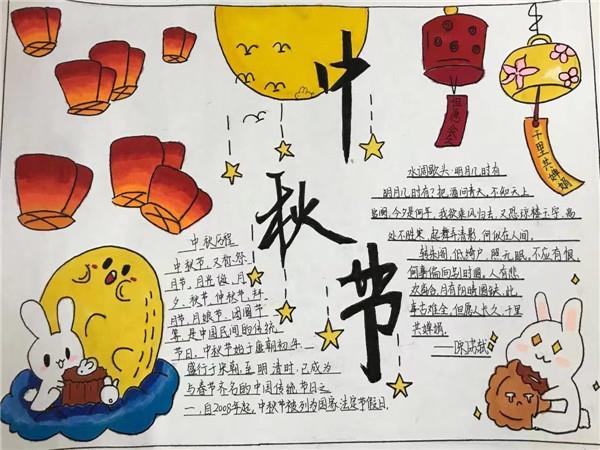 中
秋
节
但愿人
千里共婵娟
水调歌头·明月几时有
明月几时有?把酒问青天,不知天上
宫阙,今夕是何年,我欲乘风归去,又恐琼楼玉宇,高
处不胜寒,起舞弄清影,何似在人间。
转朱阁,低绮户,照无眠,不应有恨,
何事偏向别时圆,人有悲
欢离合,月有阴晴圆缺,此
事古难全,但愿人长久,千里
共婵娟。
中秋
中秋节,又称祭
月节,月光诞,月
夕,秋节,仲秋节,拜
月节,月娘节,团圆节
等,是中国民间的传统
节日。中秋节始于唐朝初年
盛行于宋朝,至明清时,已成为
与春节齐名的中国传统节日之
一,自2008年起,中秋节被列为国家法定节假日.